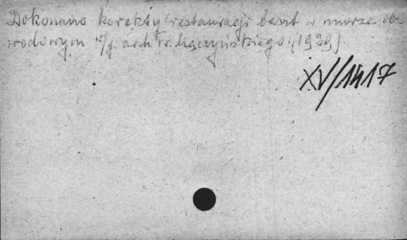 Dokonano korekty restauracji baszt w murze ob
wodowym w/g arch Fr. Mączyńskiego. (1929).
XV/1417